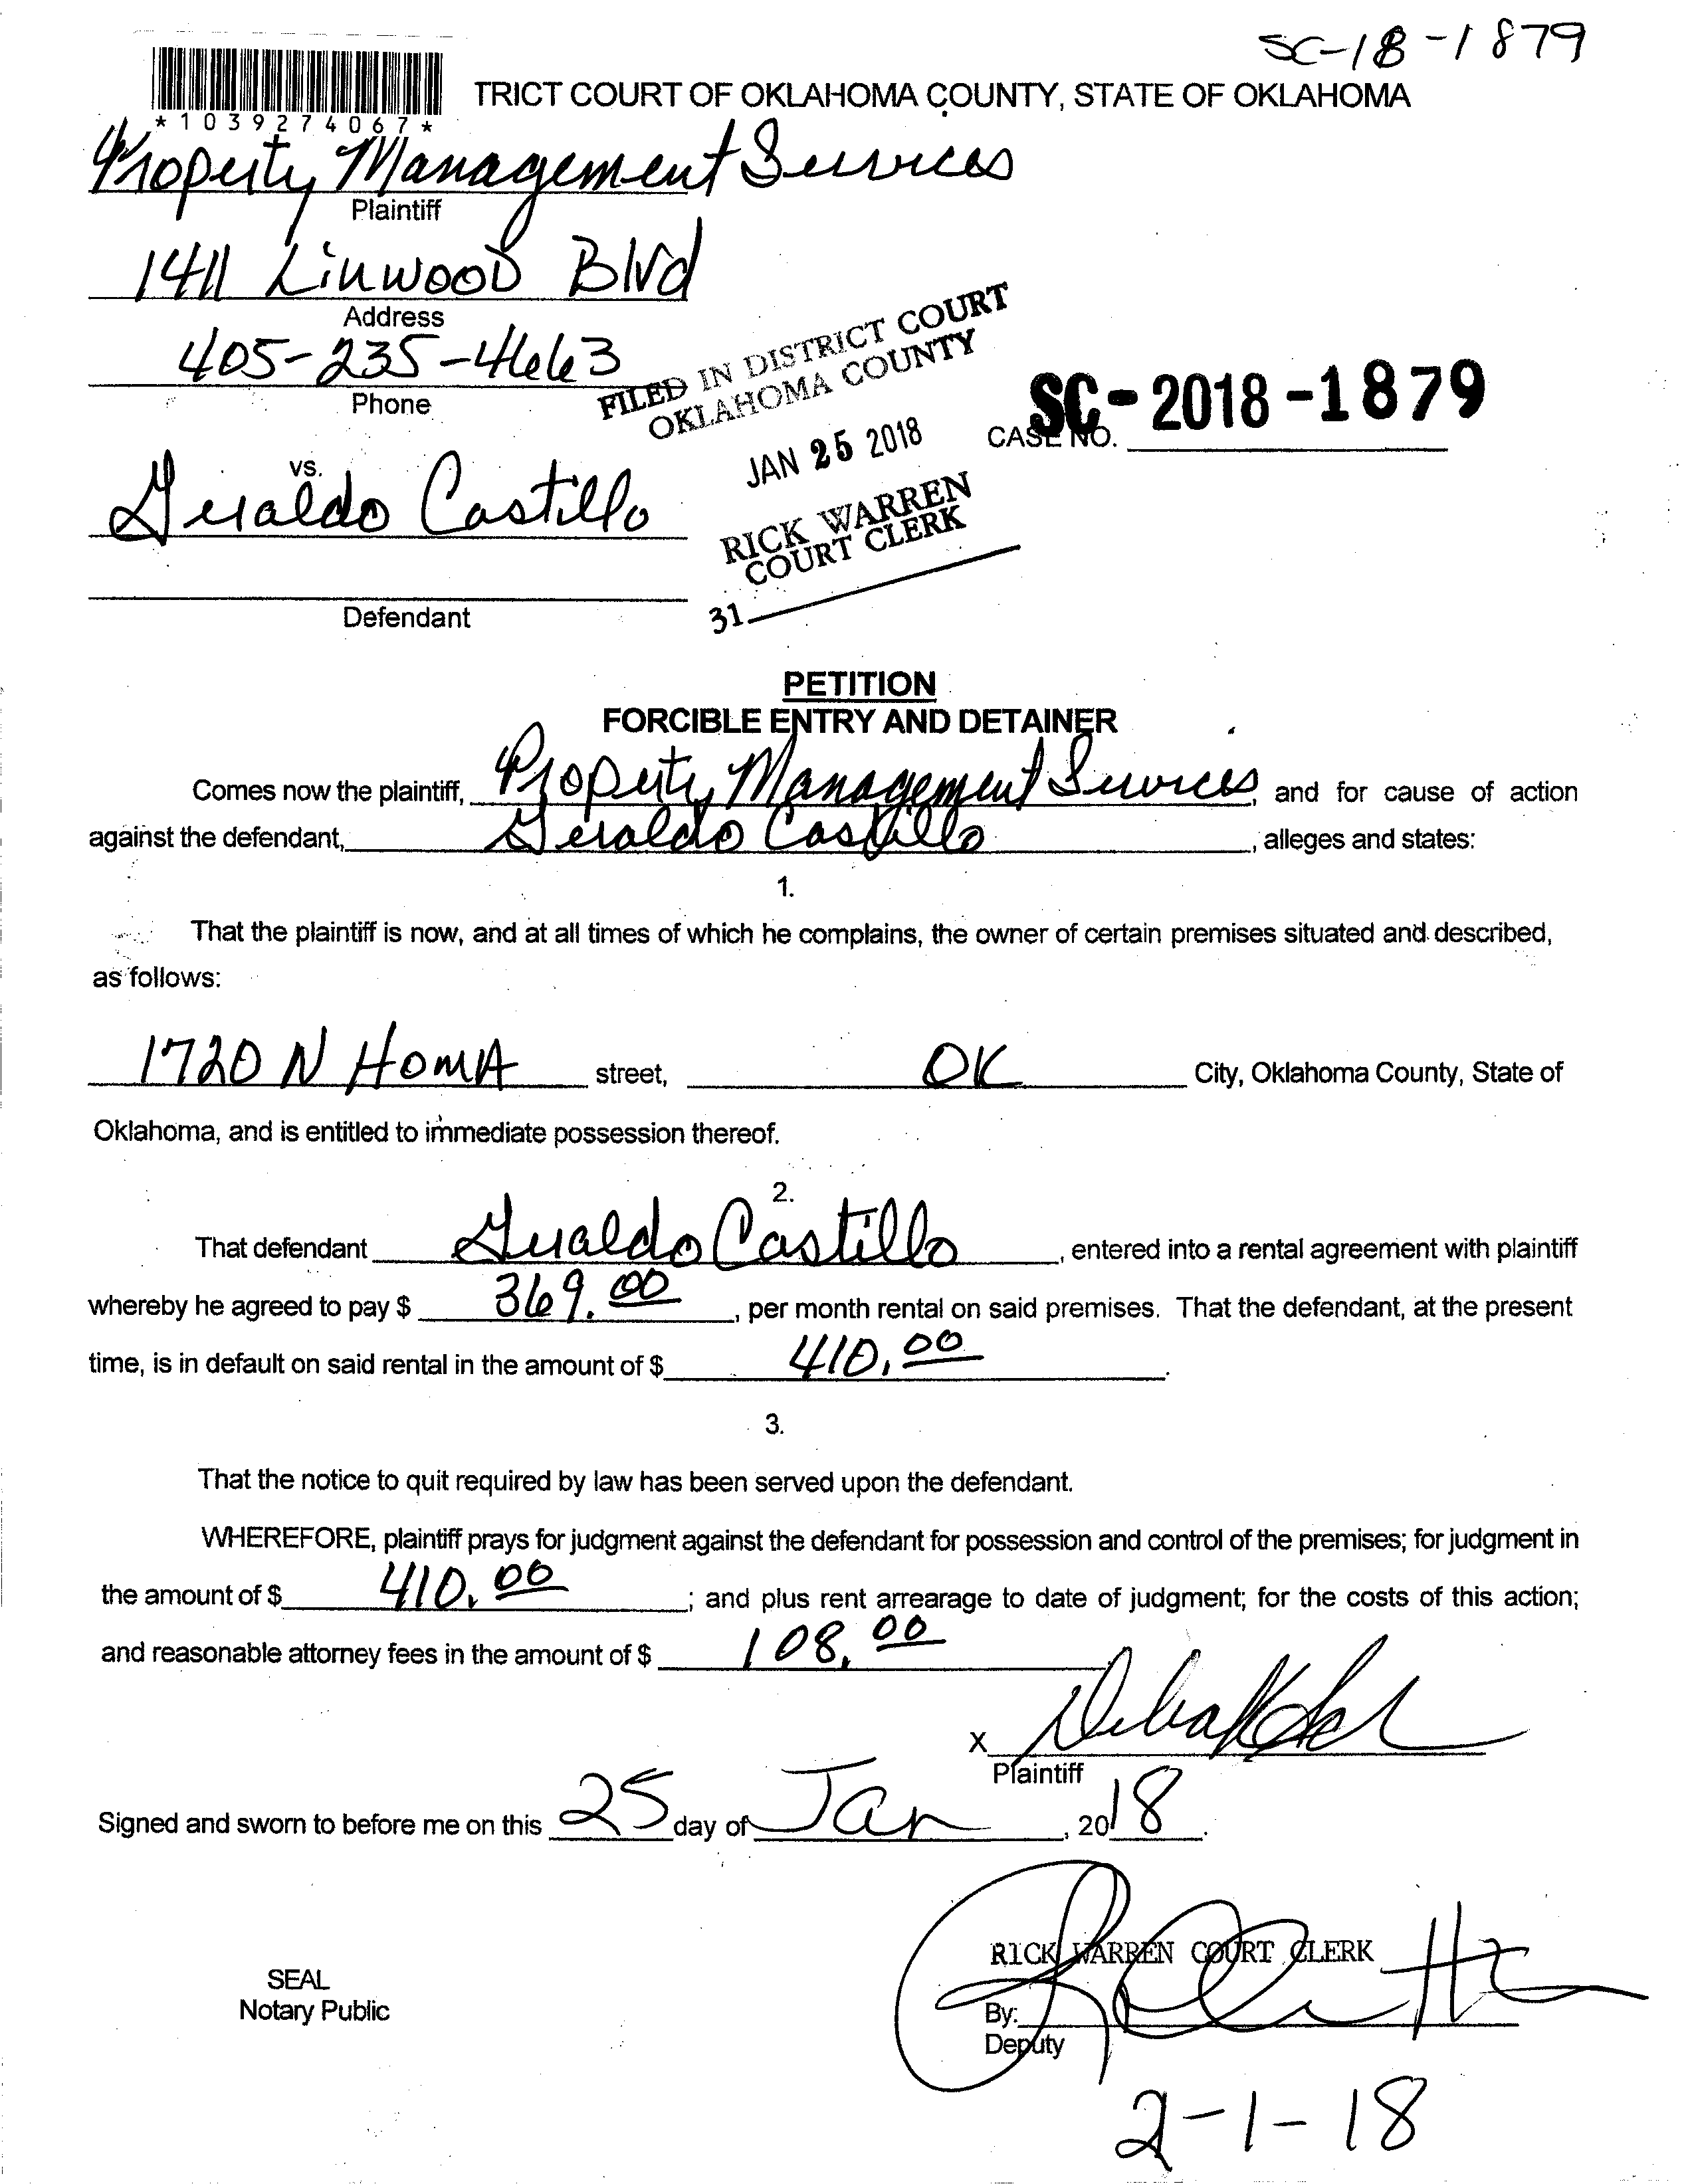 SC-18-1879
*1039274067*
TRICT COURT OF OKLAHOMA COUNTY, STATE OF OKLAHOMA
Property Management Services
Plaintiff
1411 Linwood Blvd
Address
405-235-4663
Phone
FILED IN DISTRICT COURT
OKLAHOMA COUNTY
JAN 25 2018
RICK WARREN
COURT CLERK
31
CASE NO. SC-2018-1879
vs.
Geraldo Castillo
Defendant
PETITION
FORCIBLE ENTRY AND DETAINER
Comes now the plaintiff, Property Management Services, and for cause of action
against the defendant, Geraldo Castillo, alleges and states:
1.
That the plaintiff is now, and at all times of which he complains, the owner of certain premises situated and described,
as follows:
1720 N HOMA street, OK City, Oklahoma County, State of
Oklahoma, and is entitled to immediate possession thereof.
2.
That defendant Geraldo Castillo, entered into a rental agreement with plaintiff
whereby he agreed to pay $ 369.00, per month rental on said premises. That the defendant, at the present
time, is in default on said rental in the amount of $ 410.00.
3.
That the notice to quit required by law has been served upon the defendant.
WHEREFORE, plaintiff prays for judgment against the defendant for possession and control of the premises; for judgment in
the amount of $ 410.00; and plus rent arrearage to date of judgment; for the costs of this action;
and reasonable attorney fees in the amount of $ 108.00
X
Plaintiff
Signed and sworn to before me on this 25 day of Jan, 2018.
RICK WARREN COURT CLERK
SEAL
Notary Public
By:
Deputy
2-1-18